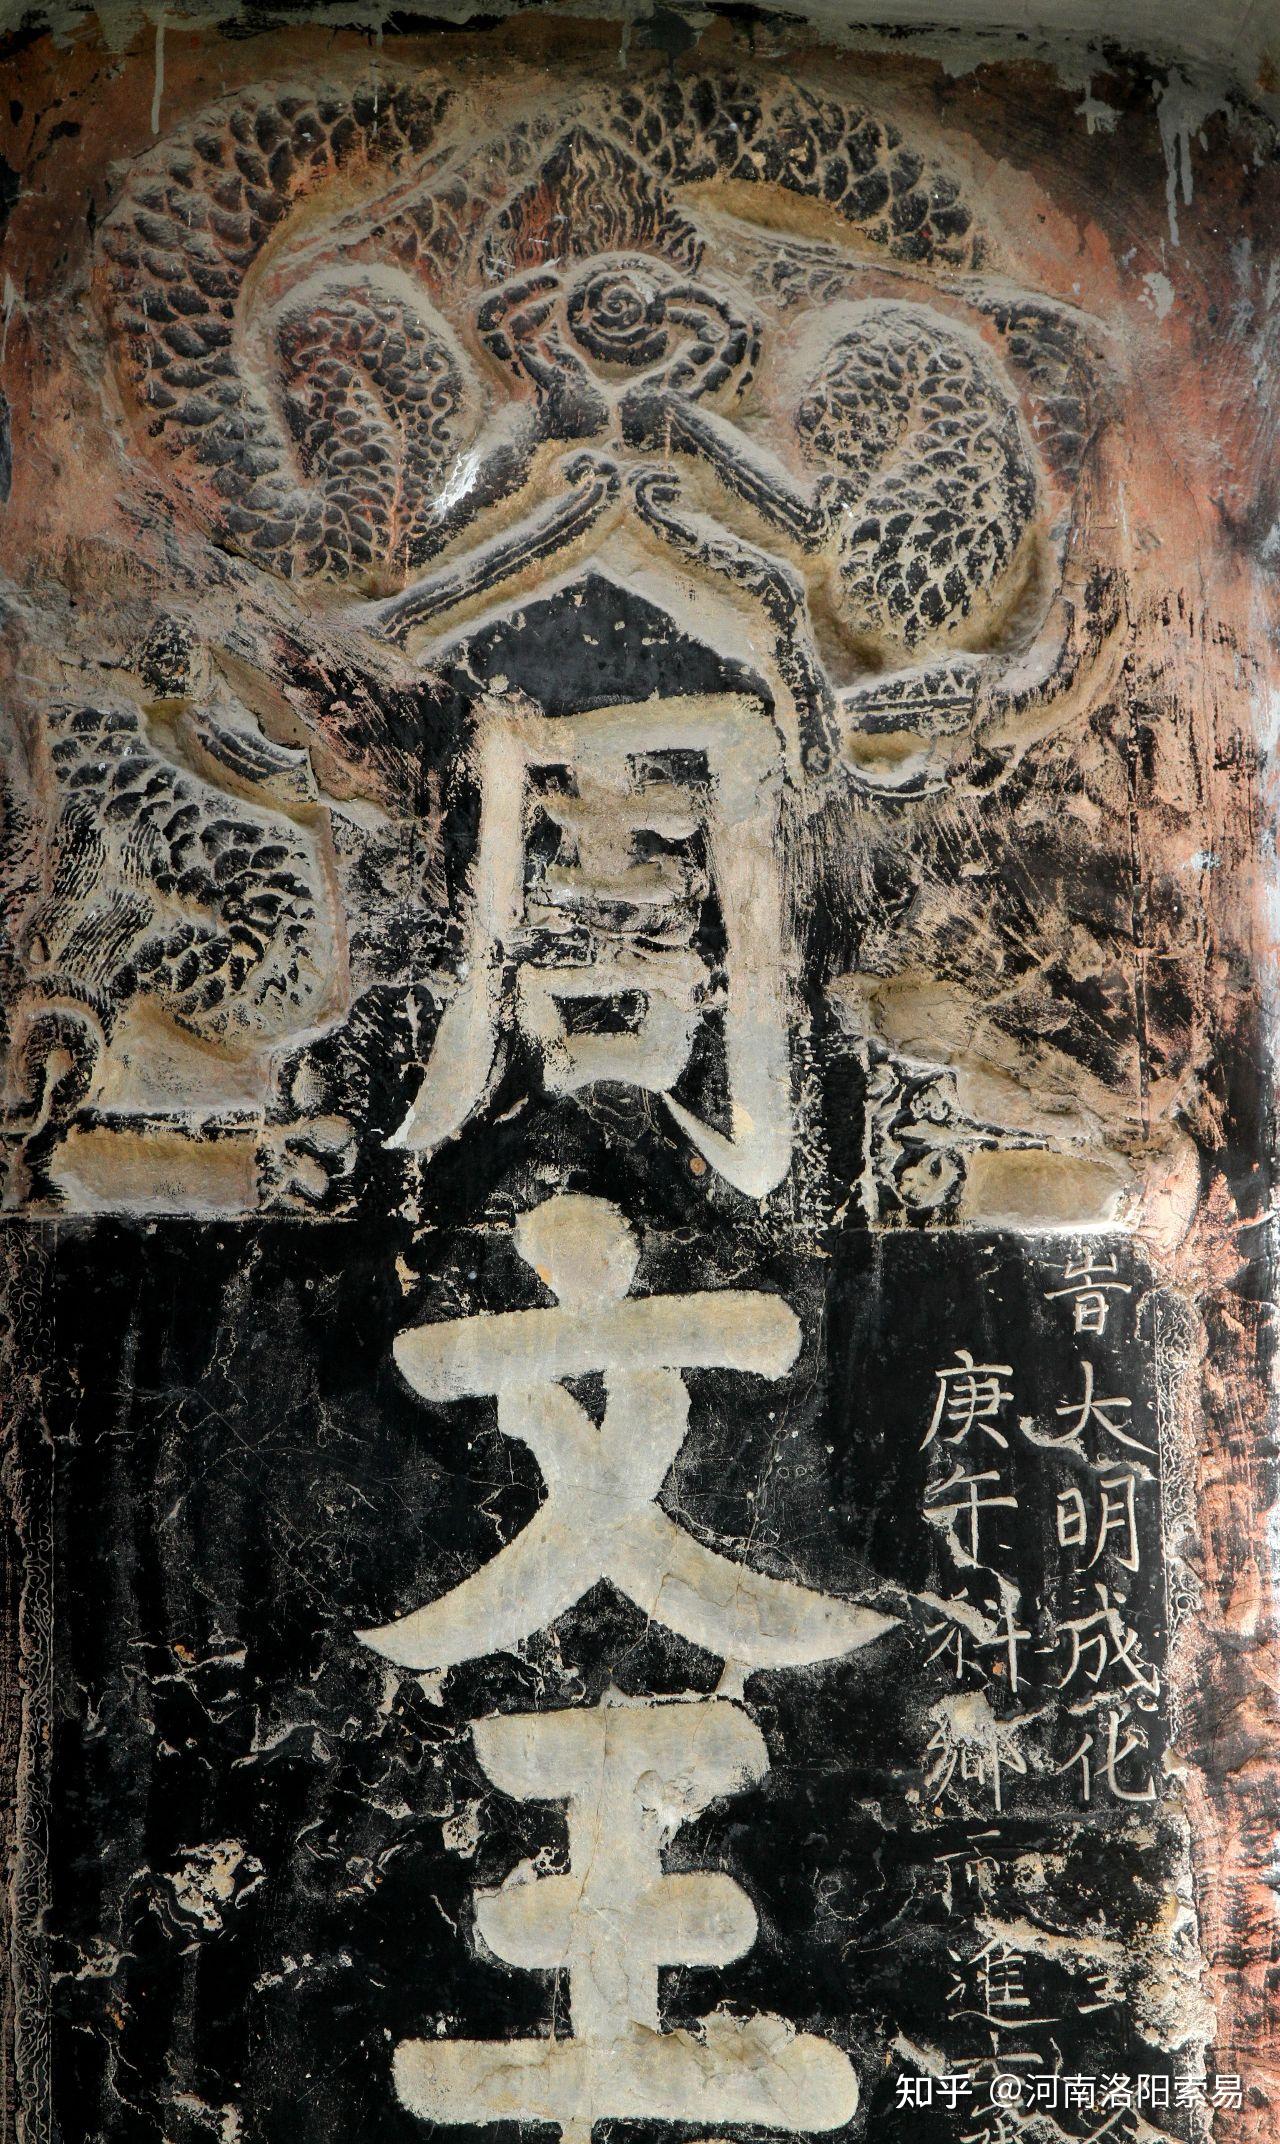 旹大明成化
庚午科鄉進
周文王
知乎 @河南洛阳索易